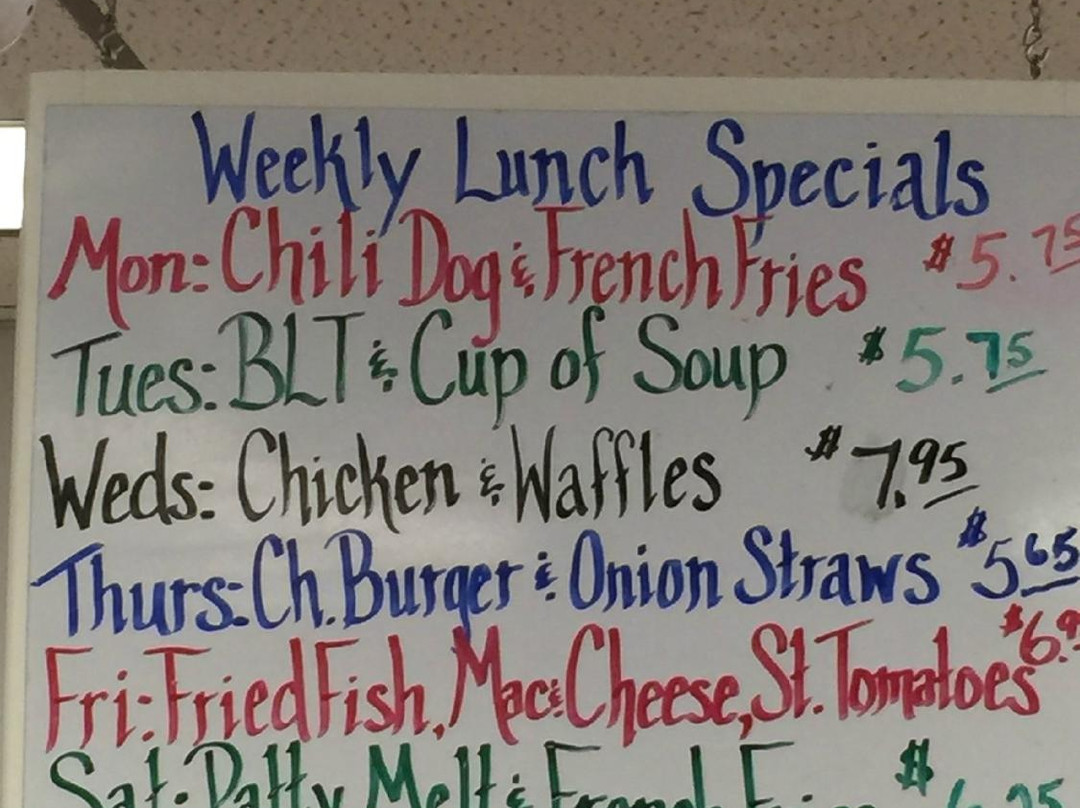 Weekly Lunch Specials
Mon: Chili Dog & French Fries $5.75
Tues: BLT & Cup of Soup $5.75
Weds: Chicken & Waffles $7.95
Thurs: Ch. Burger & Onion Straws $5.65
Fri: Fried Fish, Mac & Cheese, St. Tomatoes $6.9
Sat: Patty Melt & French Fries $6.95